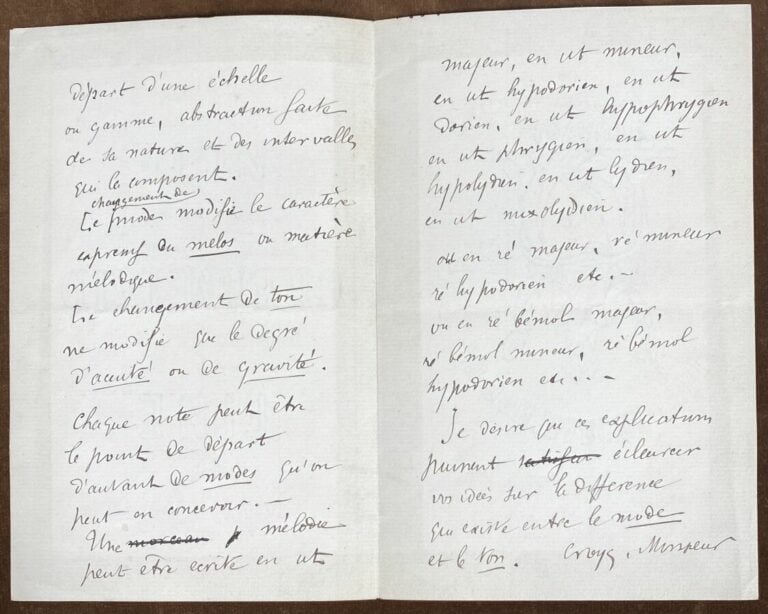 départ d'une échelle
ou gamme, abstraction faite
de sa nature et des intervalles
qui la composent.
changement de
Le mode modifie le caractère
expressif du melos ou matière
mélodique.
Le changement de ton
ne modifie que le degré
d'acuité ou de gravité.
Chaque note peut être
le point de départ
d'autant de modes qu'on
peut en concevoir. —
Une morceau mélodie
peut être écrite en ut
majeur, en ut mineur,
en ut hypodorien, en ut
dorien, en ut hypophrygien
en ut phrygien, en ut
hypolydien. en ut lydien,
en ut mixolydien.
ou en ré majeur, ré mineur
ré hypodorien etc. —
ou en ré bémol majeur,
ré bémol mineur, ré bémol
hypodorien etc.. —
Je désire que ces explications
puissent éclairer
vos idées sur la différence
qui existe entre le mode
et le ton. Croyez, Monsieur